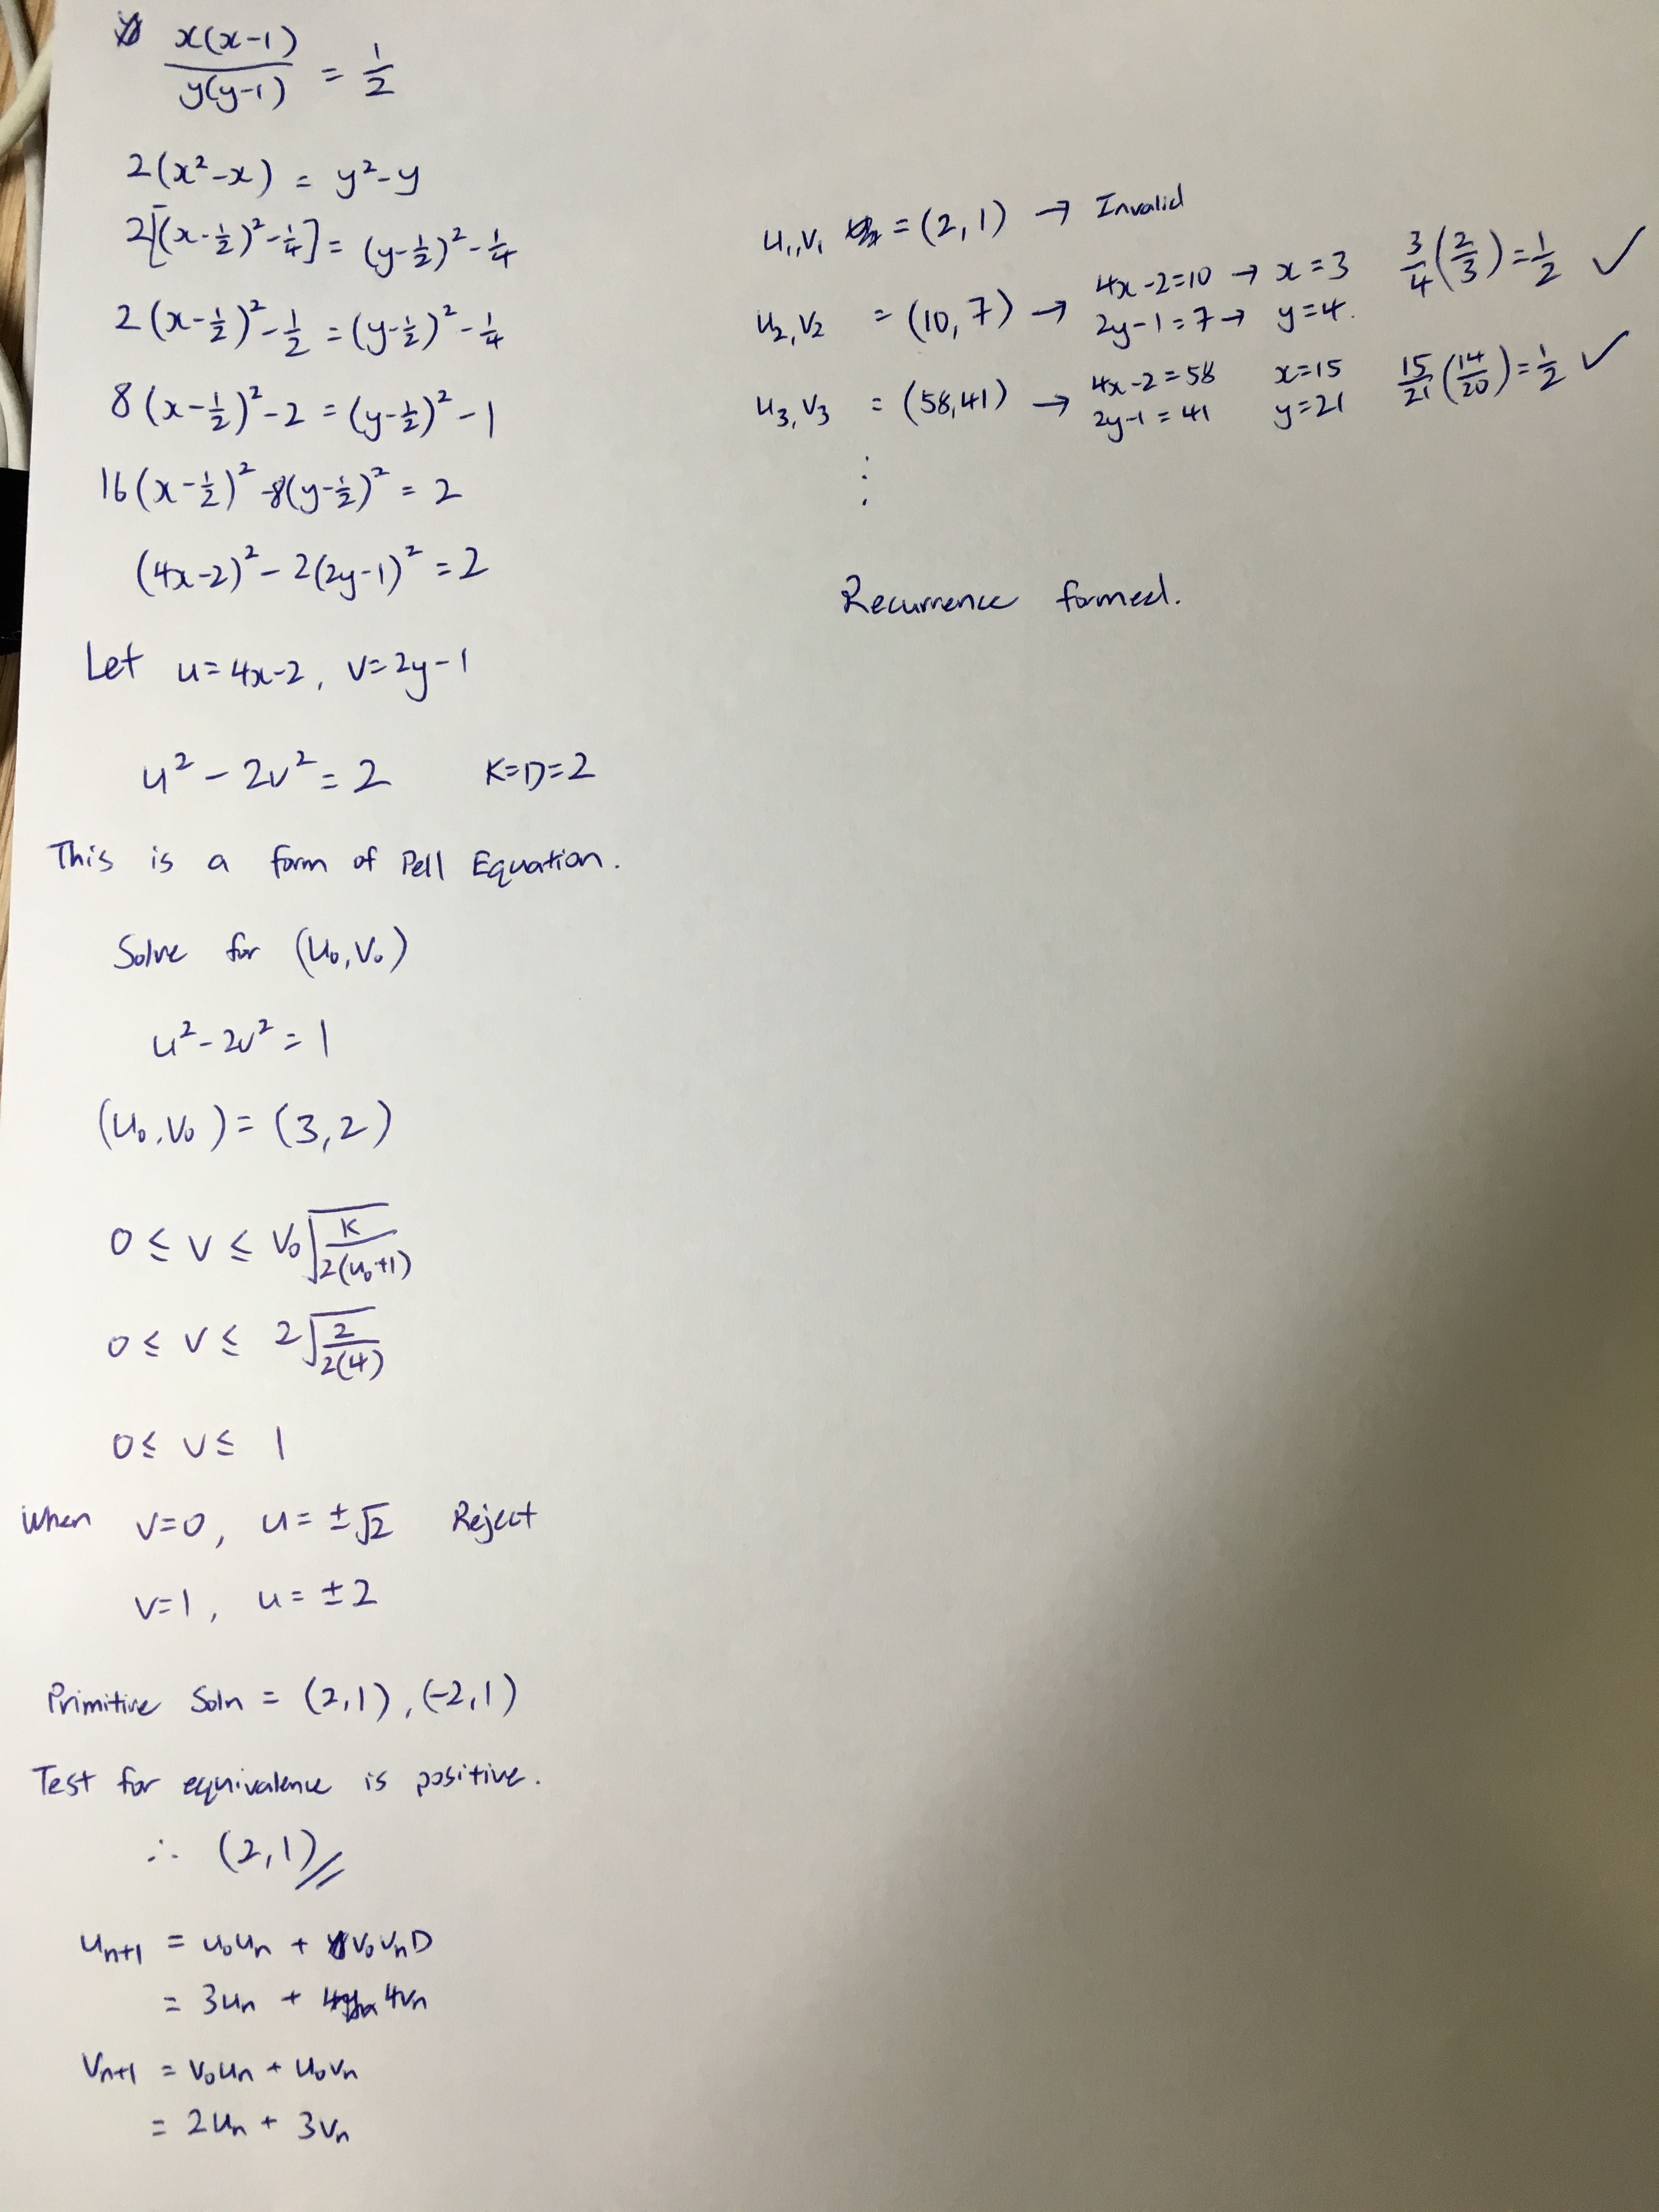 x(x-1)/y(y-1) = 1/2
2(x²-x) = y²-y
2[(x-1/2)²-1/4] = (y-1/2)²-1/4
2(x-1/2)²-1/2 = (y-1/2)²-1/4
8(x-1/2)²-2 = (y-1/2)²-1
16(x-1/2)²-8(y-1/2)² = 2
(4x-2)²-2(2y-1)² = 2
Let u=4x-2, v=2y-1
u²-2v²=2 K=D=2
This is a form of Pell Equation.
Solve for (u₀,v₀)
u²-2v²=1
(u₀,v₀)=(3,2)
0 ≤ v ≤ v₀√(K/2(u₀+1))
0 ≤ v ≤ 2√(2/2(4))
0 ≤ v ≤ 1
When v=0, u=±√2 Reject
v=1, u=±2
Primitive Soln = (2,1), (-2,1)
Test for equivalence is positive.
∴ (2,1)
uₙ₊₁ = u₀uₙ + v₀vₙD
= 3uₙ + 4vₙ
vₙ₊₁ = v₀uₙ + u₀vₙ
= 2uₙ + 3vₙ
u₁,v₁ = (2,1) → Invalid
u₂,v₂ = (10,7) → 4x-2=10 → x=3 3/4(2/3)=1/2 ✓
2y-1=7 → y=4.
u₃,v₃ = (58,41) → 4x-2=58 x=15 15/21(14/20)=1/2 ✓
2y-1=41 y=21
⋮
Recurrence formed.